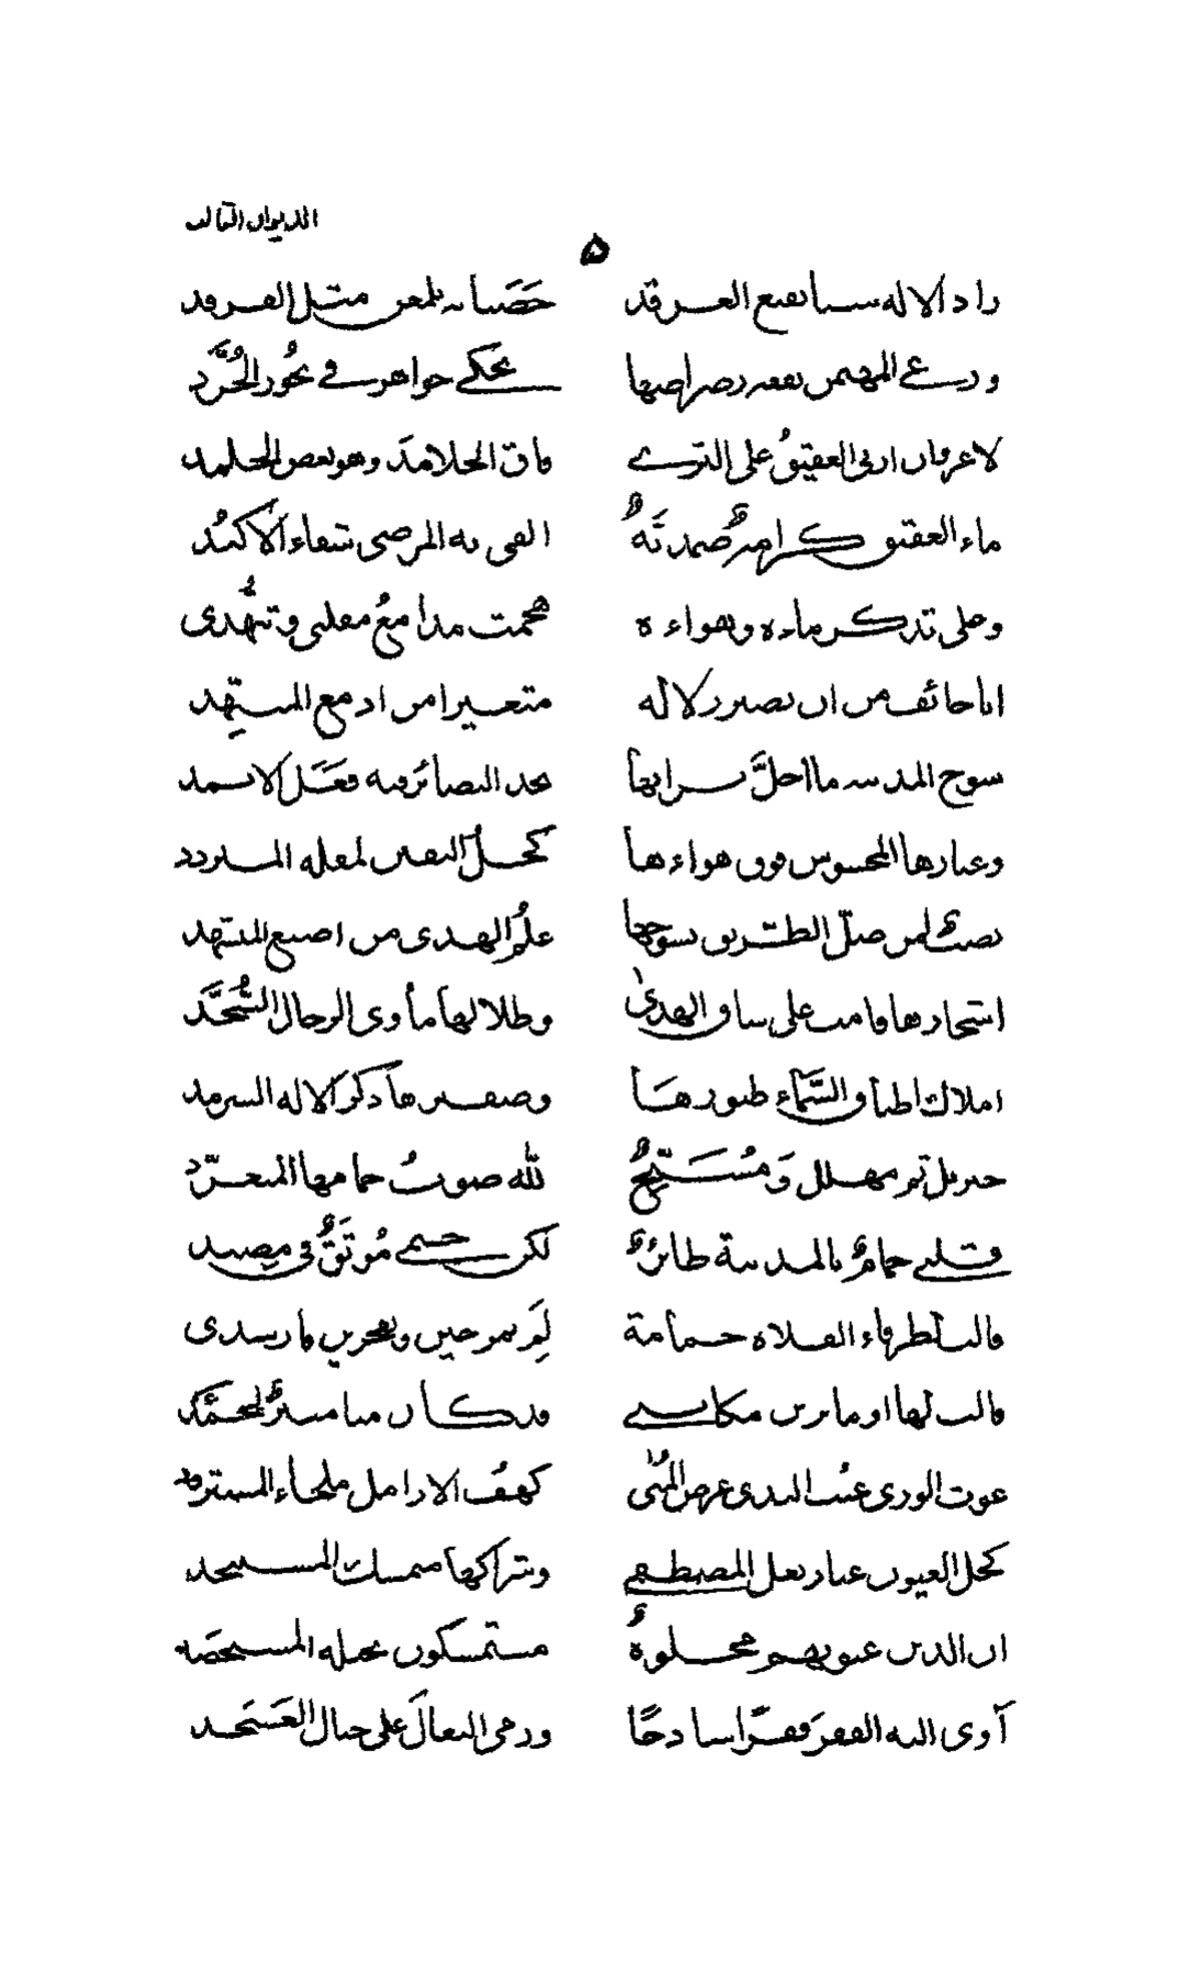 الديوان الثالث
٥
زاد الاله سنا بقيع الغرقد حَصَباته يلمعن مثل الفرقد
ورعى المهيمن بقعة رضراضها يحكي جواهر في نحُور الخُرَّد
لا غرو ان اربى العقيقُ على الثرى فاق الجلامدَ وهو بعض الجلمد
ماء العقيق كرامةٌ صمدتَهٌ الفى به المرضى شفاء الأكبُد
وعلى تذكر مائه وهوائه همت مدامعُ مقلتى وتنهُّدى
انا خائف من ان يصير زلاله متغيرا من ادمع المتنهّد
سوح المدينة ما احلَّ ترابها تجد البصائر فيه فعَلَ الاثمد
وغبارها المحسوس فوق هواءها كحلُ اليقين لمقلة المتردد
نصبٌ لمن ضلّ الطّريق بسوحها علمُ الهدى من اصبع المتشهد
اشجارها قامت على ساق الهدىٰ وظلالها مأوى الرجال السُّجَّد
املاك اطباق السَّماء طيورهَا وصفيرها ذكر الاله السرمد
جبريل ثم مهلل وَمُسَبّحٌ لله صوتُ حمامها المتغرّد
قلبي حمامٌ بالمدينة طائرٌ لكن جسمي مُوثَقٌ في مِصيد
قالت لطرفاء الفلاة حمامة لِمَ تمرحين وتهجرين فارشدى
قالت لها اوما ترين مكانتي قد كان منا منبرٌ لمحمَّد
غوث الورى غيث الندى غرض المُنٰى كهفُ الارامل ملجأ المسترفد
كحل العيون غبار نعل المصطفى وشراكها متمسك المستنجد
ان الذين عيوبهم مجلوةٌ مستمسكون بحبله المستحصَد
آوى اليه الفقرَ فقرًا سادجًا ورمى النعالَ على جبال العَسَجد